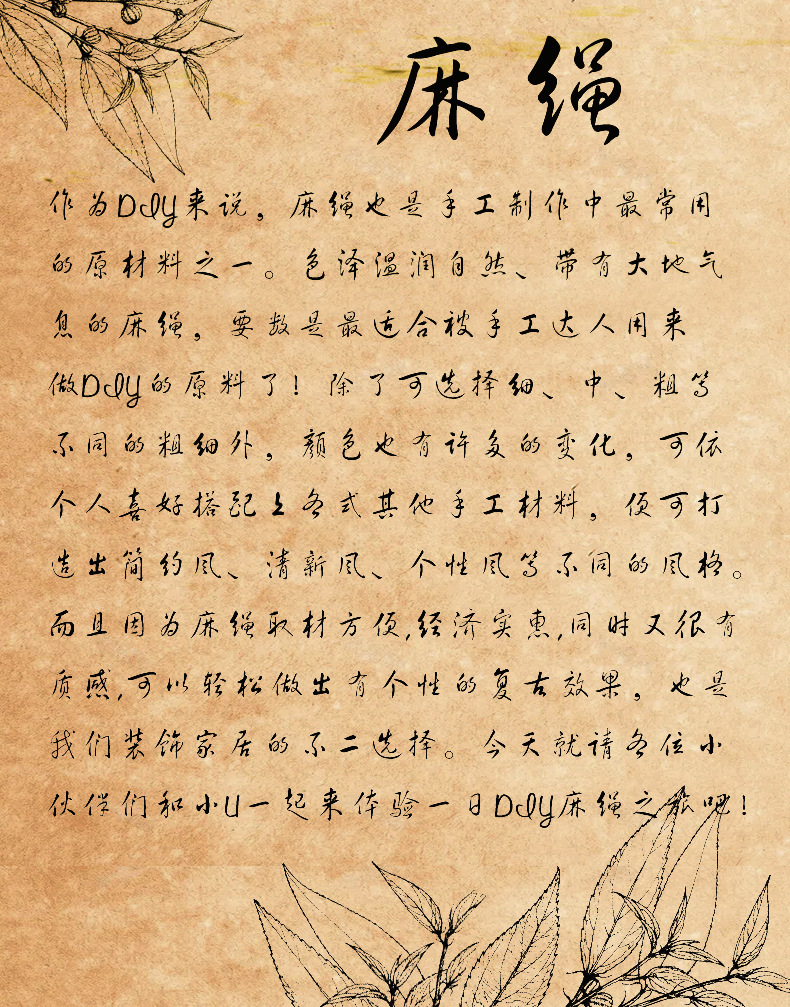 麻绳
作为DIY来说，麻绳也是手工制作中最常用
的原材料之一。色泽温润自然、带有大地气
息的麻绳，要数是最适合被手工达人用来
做DIY的原料了！除了可选择细、中、粗等
不同的粗细外，颜色也有许多的变化，可依
个人喜好搭配上各式其他手工材料，便可打
造出简约风、清新风、个性风等不同的风格。
而且因为麻绳取材方便,经济实惠,同时又很有
质感,可以轻松做出有个性的复古效果，也是
我们装饰家居的不二选择。今天就请各位小
伙伴们和小U一起来体验一日DIY麻绳之旅吧！